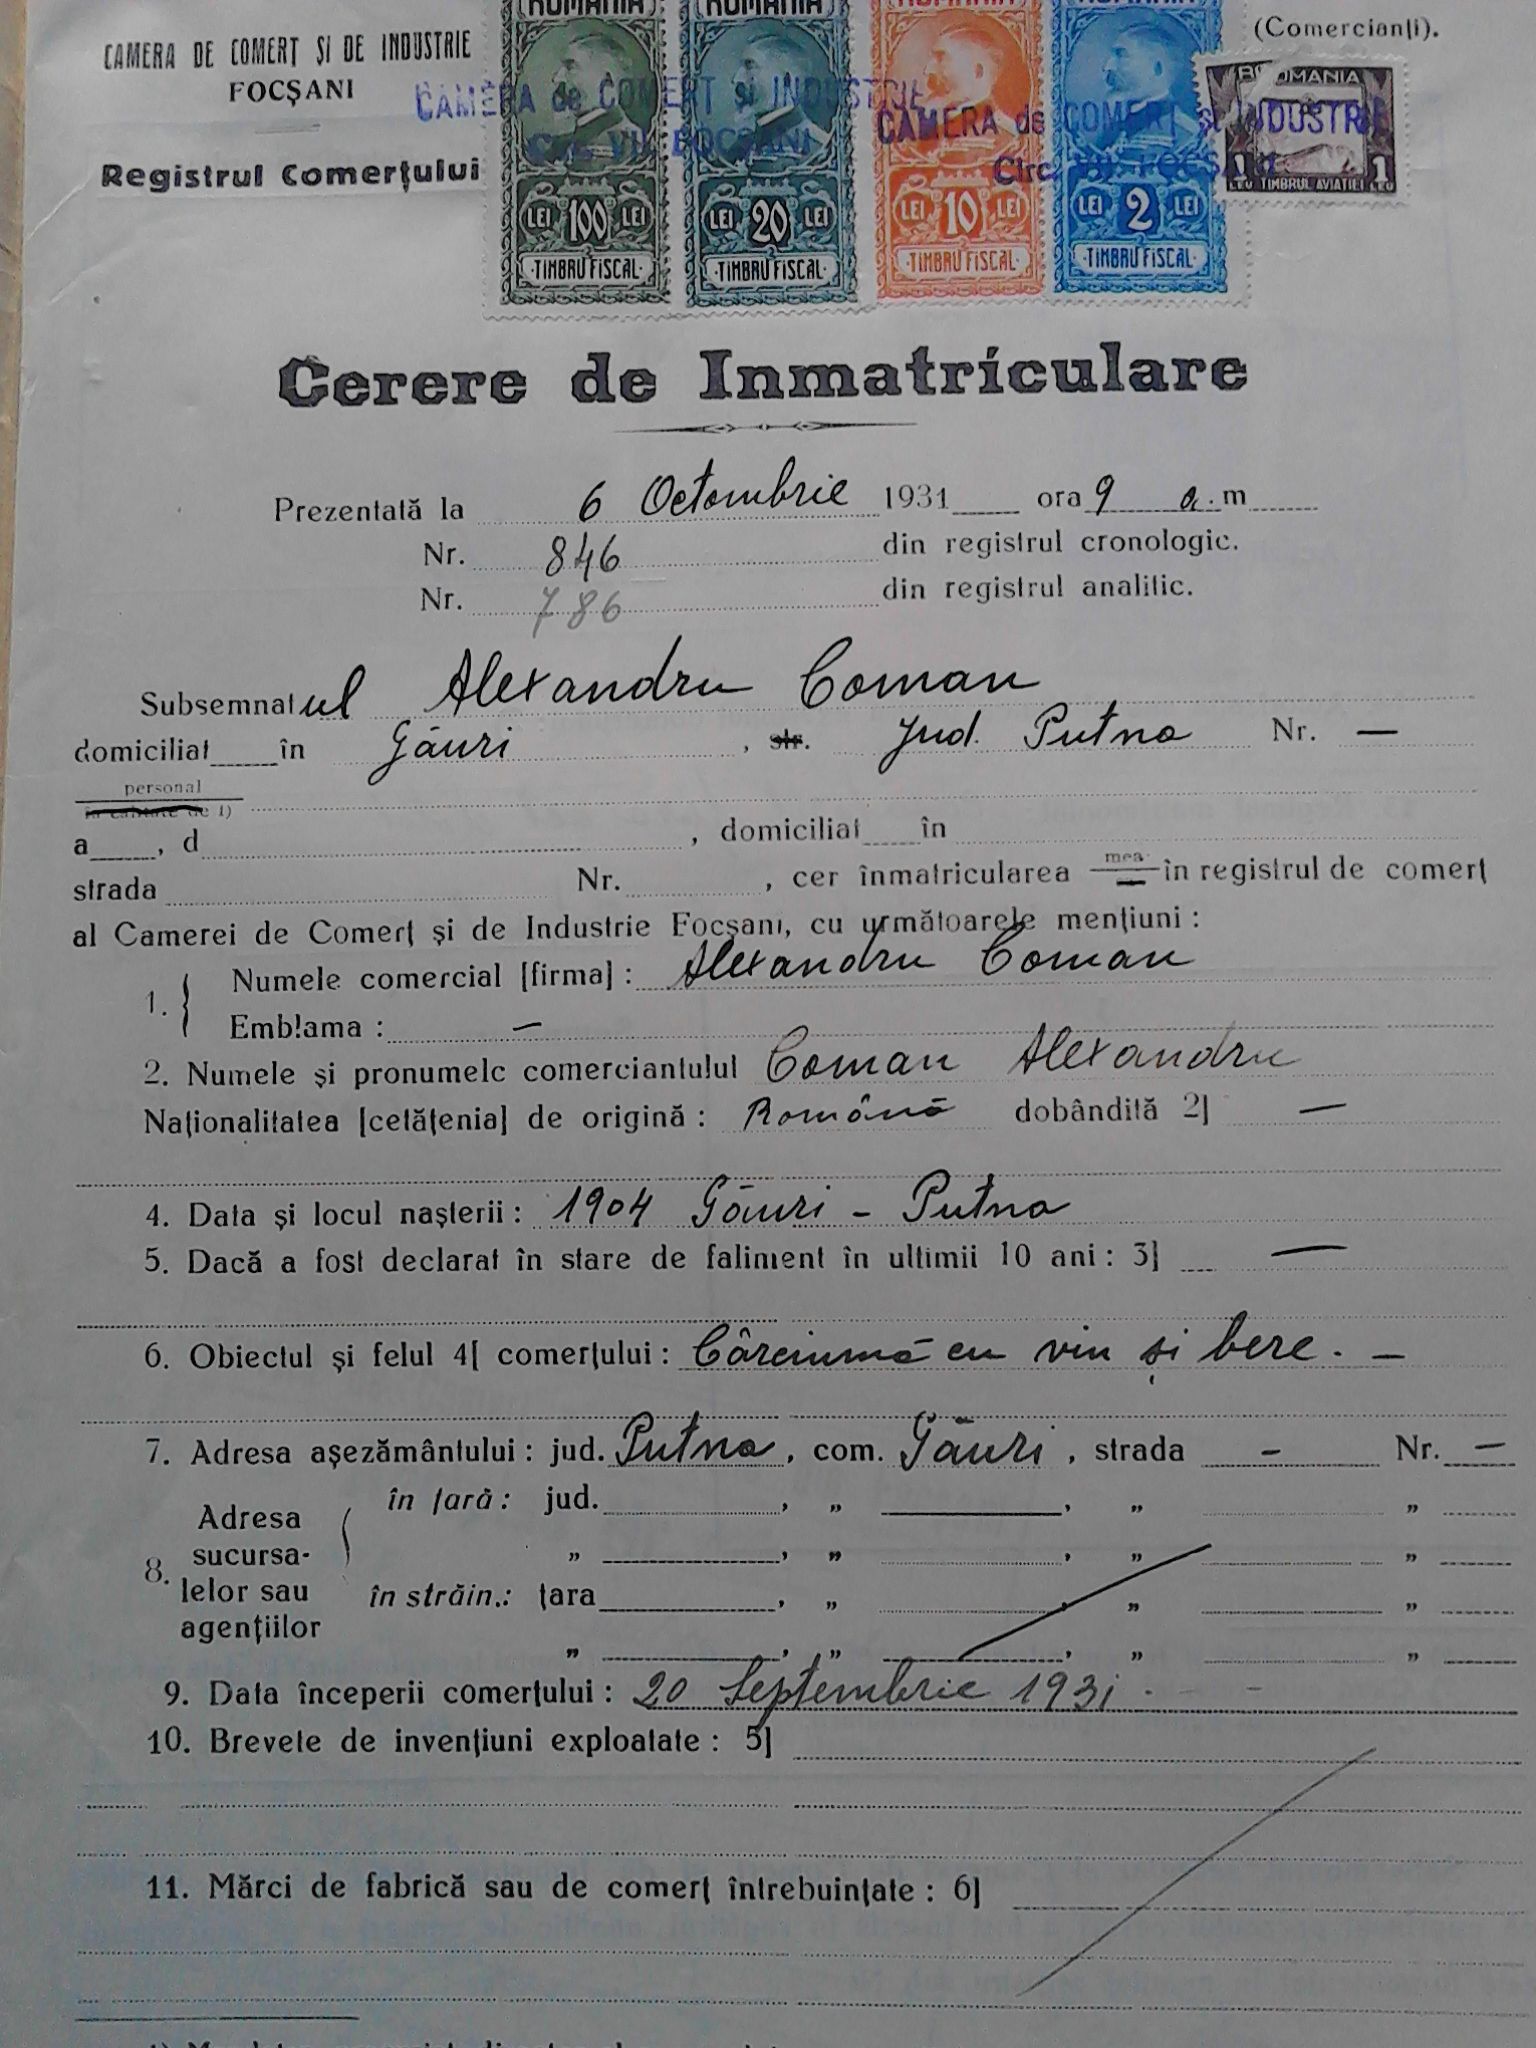 ROMANIA ROMANIA ROMANIA ROMANIA
(Comercianți).
CAMERA DE COMERȚ ȘI DE INDUSTRIE
FOCȘANI
Registrul Comerțului
CAMERA de COMERȚ și INDUSTRIE
Circ. VII FOCȘANI
CAMERA de COMERȚ și INDUSTRIE
Circ. VII FOCȘANI
LEI 100 LEI
TIMBRU FISCAL
LEI 20 LEI
TIMBRU FISCAL
LEI 10 LEI
TIMBRU FISCAL
LEI 2 LEI
TIMBRU FISCAL
ROMANIA
1 1
LEU TIMBRUL AVIAȚIEI LEU
Cerere de Inmatriculare
Prezentată la 6 Octombrie 1931 ora 9 a.m
Nr. 846 din registrul cronologic.
Nr. 786 din registrul analitic.
Subsemnatul Alexandru Coman
domiciliat în Găuri, str. Jud. Putna Nr. —
personal
în calitate de 1)
a , d , domiciliat în
strada Nr. , cer înmatricularea mea în registrul de comerț
al Camerei de Comerț și de Industrie Focșani, cu următoarele mențiuni :
1. Numele comercial [firma] : Alexandru Coman
Emblama : —
2. Numele și pronumele comerciantului Coman Alexandru
Naționalitatea [cetățenia] de origină : Română dobândită 2] —
4. Data și locul nașterii : 1904 Găuri - Putna
5. Dacă a fost declarat în stare de faliment în ultimii 10 ani : 3] —
6. Obiectul și felul 4[ comerțului : Cârciumă cu vin și bere. —
7. Adresa așezământului : jud. Putna, com. Găuri, strada - Nr. —
8. Adresa sucursa-lelor sau agențiilor
în țară : jud. , „ , „ „
„ , „ , „ „
în străin.: țara , „ , „ „
„ , „ , „ „
9. Data începerii comerțului : 20 Septembrie 1931. - -
10. Brevete de invențiuni exploatate : 5]
11. Mărci de fabrică sau de comerț întrebuințate : 6]